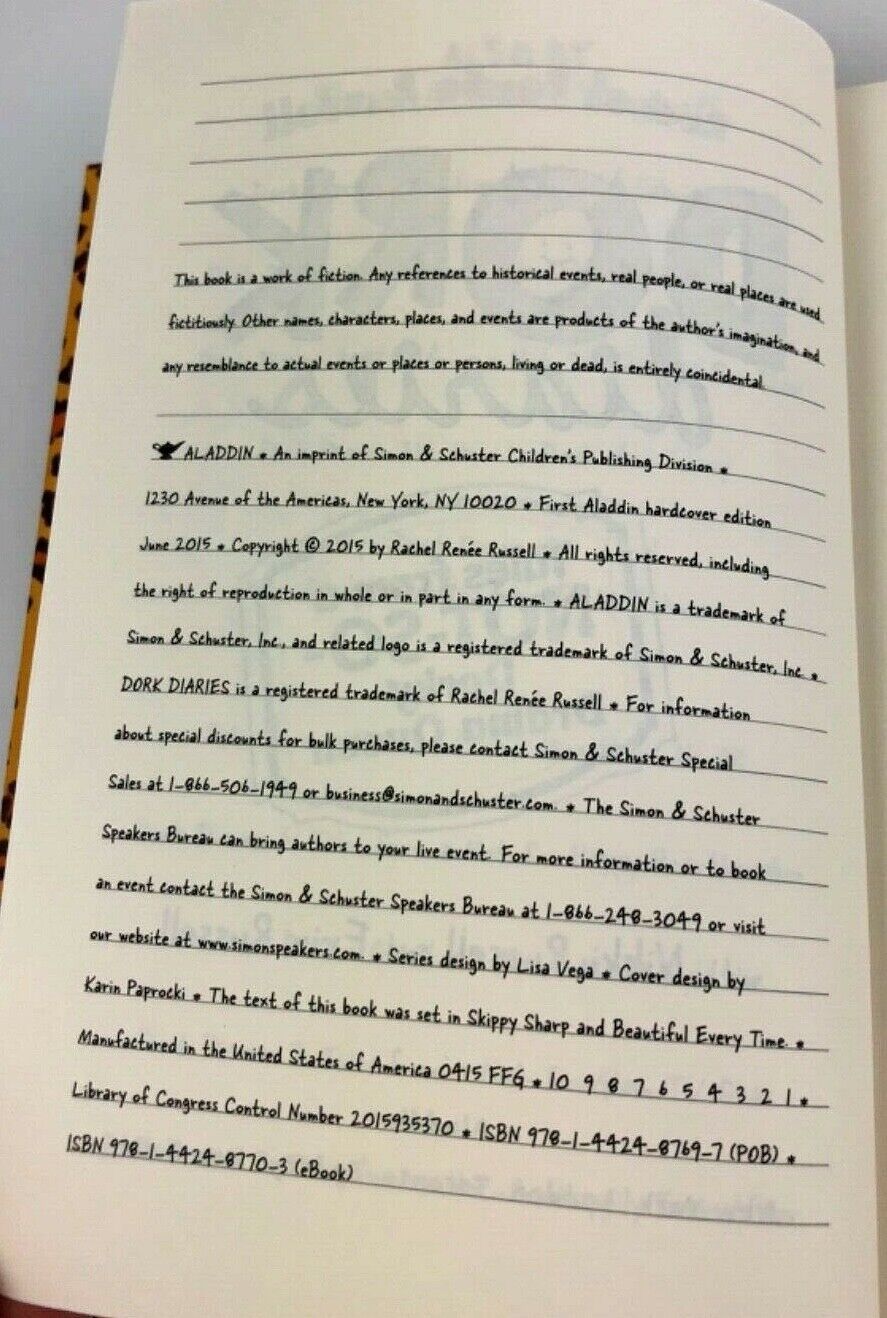 This book is a work of fiction. Any references to historical events, real people, or real places are used
fictitiously. Other names, characters, places, and events are products of the author's imagination, and
any resemblance to actual events or places or persons, living or dead, is entirely coincidental.
ALADDIN * An imprint of Simon & Schuster Children's Publishing Division *
1230 Avenue of the Americas, New York, NY 10020 * First Aladdin hardcover edition
June 2015 * Copyright © 2015 by Rachel Renée Russell * All rights reserved, including
the right of reproduction in whole or in part in any form. * ALADDIN is a trademark of
Simon & Schuster, Inc., and related logo is a registered trademark of Simon & Schuster, Inc. *
DORK DIARIES is a registered trademark of Rachel Renée Russell * For information
about special discounts for bulk purchases, please contact Simon & Schuster Special
Sales at 1-866-506-1949 or business@simonandschuster.com. * The Simon & Schuster
Speakers Bureau can bring authors to your live event. For more information or to book
an event contact the Simon & Schuster Speakers Bureau at 1-866-248-3049 or visit
our website at www.simonspeakers.com. * Series design by Lisa Vega * Cover design by
Karin Paprocki * The text of this book was set in Skippy Sharp and Beautiful Every Time. *
Manufactured in the United States of America 0415 FFG * 10 9 8 7 6 5 4 3 2 1 *
Library of Congress Control Number 2015935370 * ISBN 978-1-4424-8769-7 (POB) *
ISBN 978-1-4424-8770-3 (eBook)